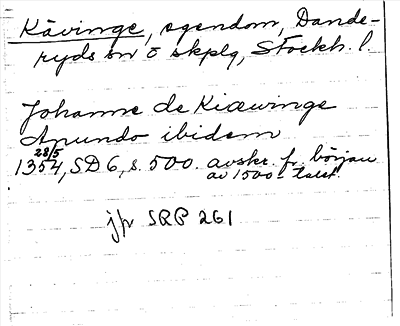 Kävinge, egendom, Dande-
ryds sn o skplg, Stockh. l.
Johanne de Kiæwinge
Apundo ibidem
28/5
1354, SD 6, s. 500. avskr. fr. början
av 1500-talet.
jfr SRP 261